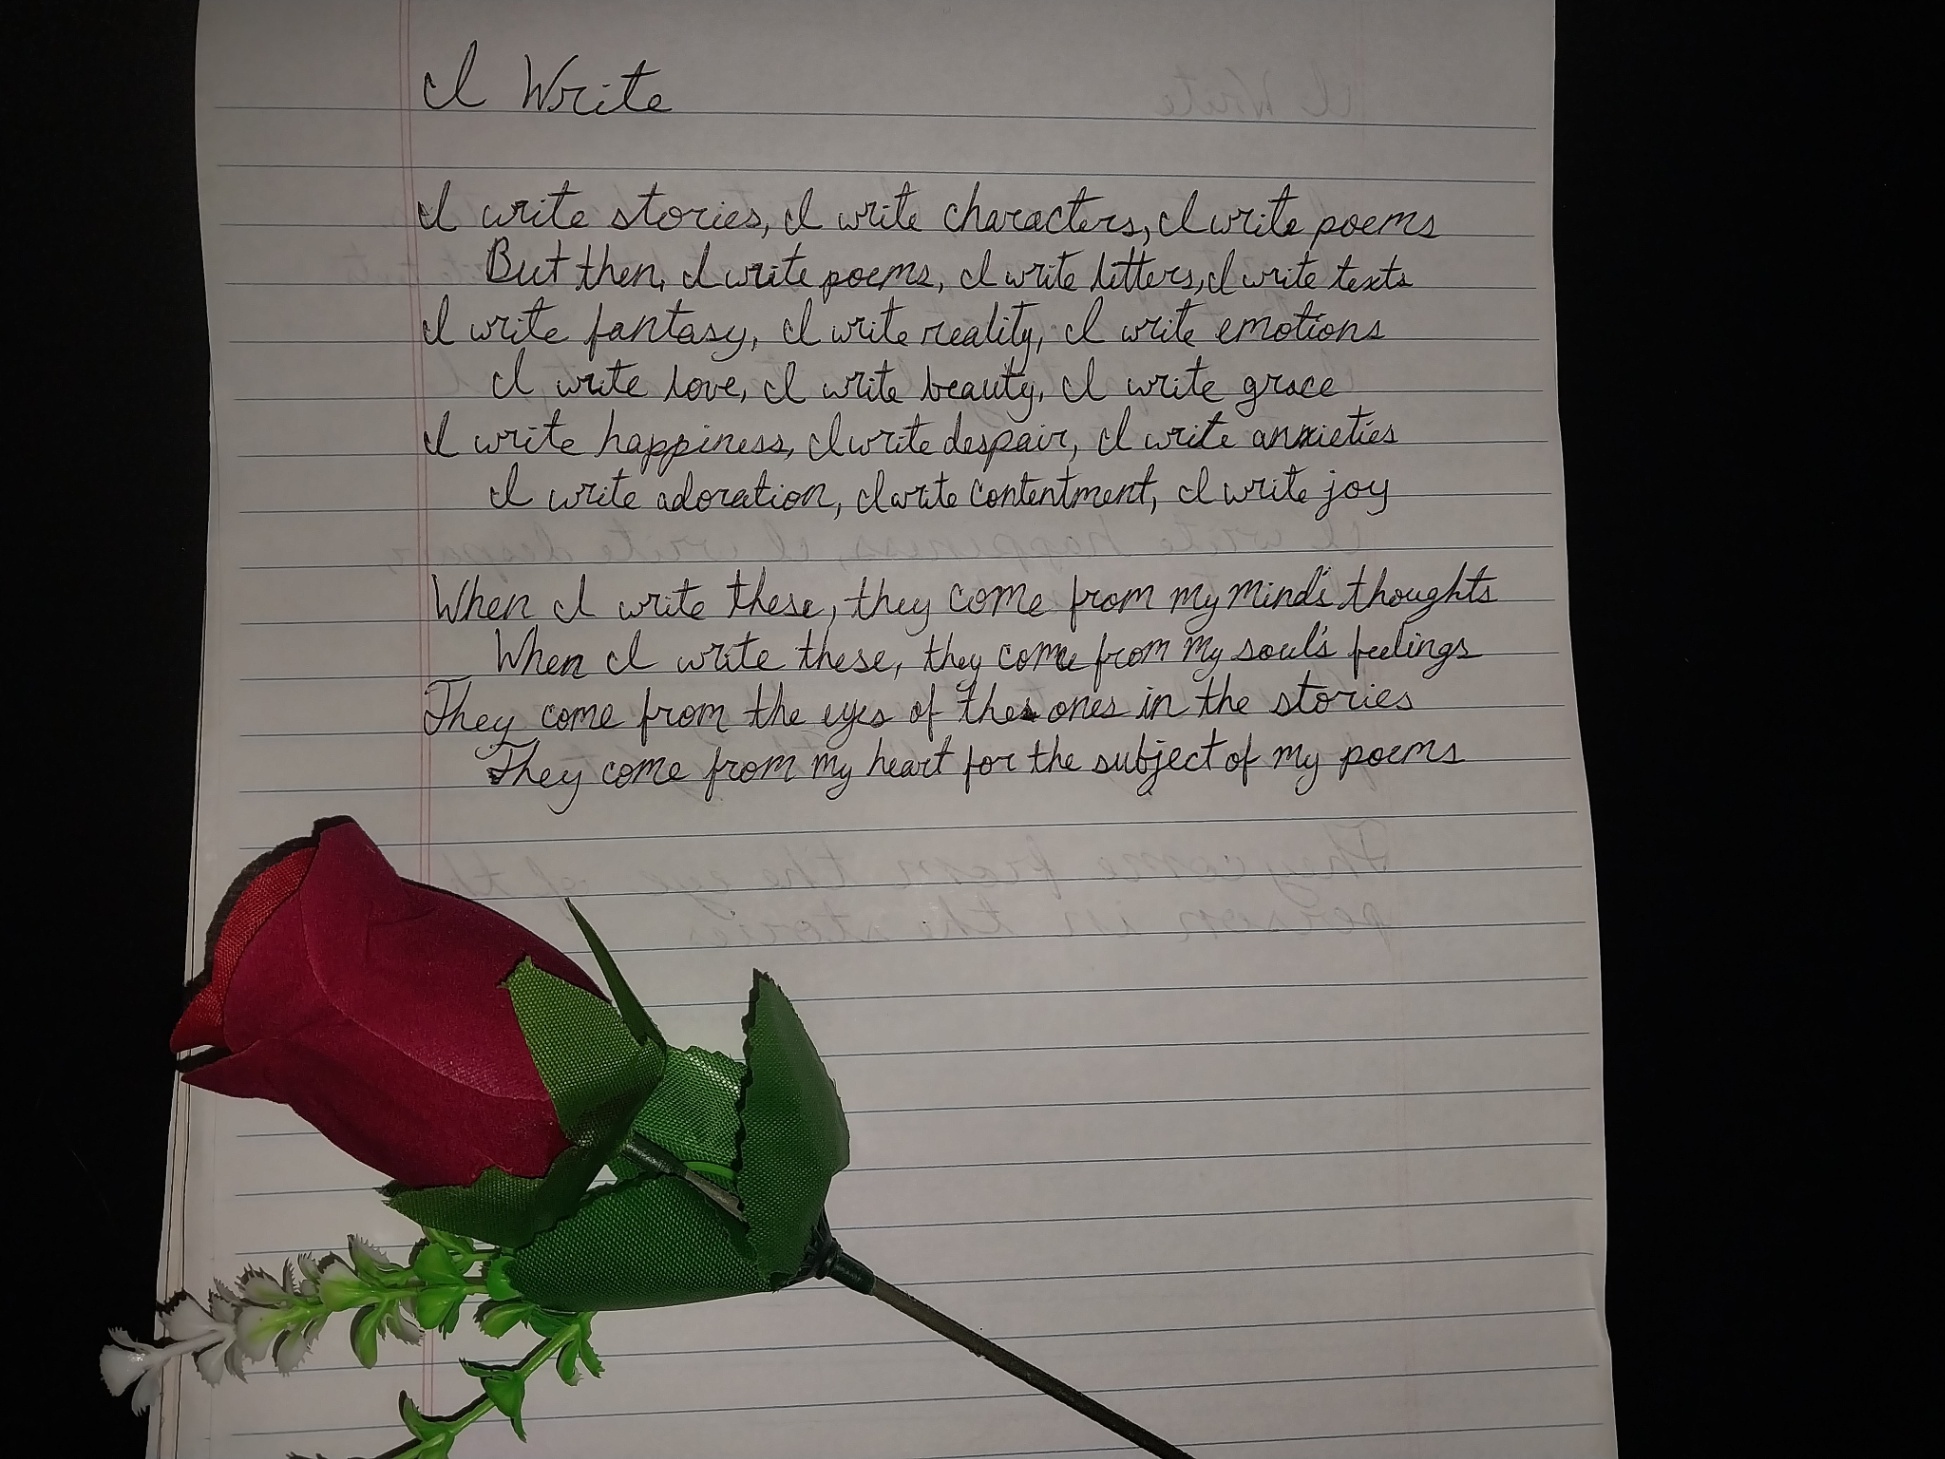 I Write
I write stories, I write characters, I write poems
But then, I write poems, I write letters, I write texts
I write fantasy, I write reality, I write emotions
I write love, I write beauty, I write grace
I write happiness, I write despair, I write anxieties
I write adoration, I write contentment, I write joy
When I write these, they come from my mind's thoughts
When I write these, they come from my soul's feelings
They come from the eyes of the ones in the stories
They come from my heart for the subject of my poems